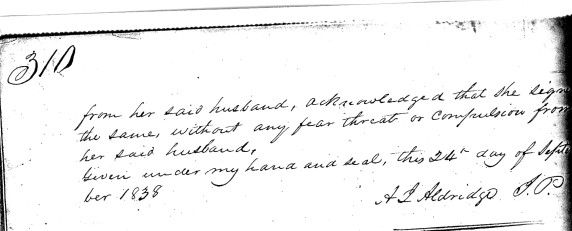 310
from her said husband, acknowledged that she sign
the same, without any fear threat or compulsion from
her said husband,
Given under my hand and seal, this 24th day of Septe
ber 1838
A J Aldridge J.P.